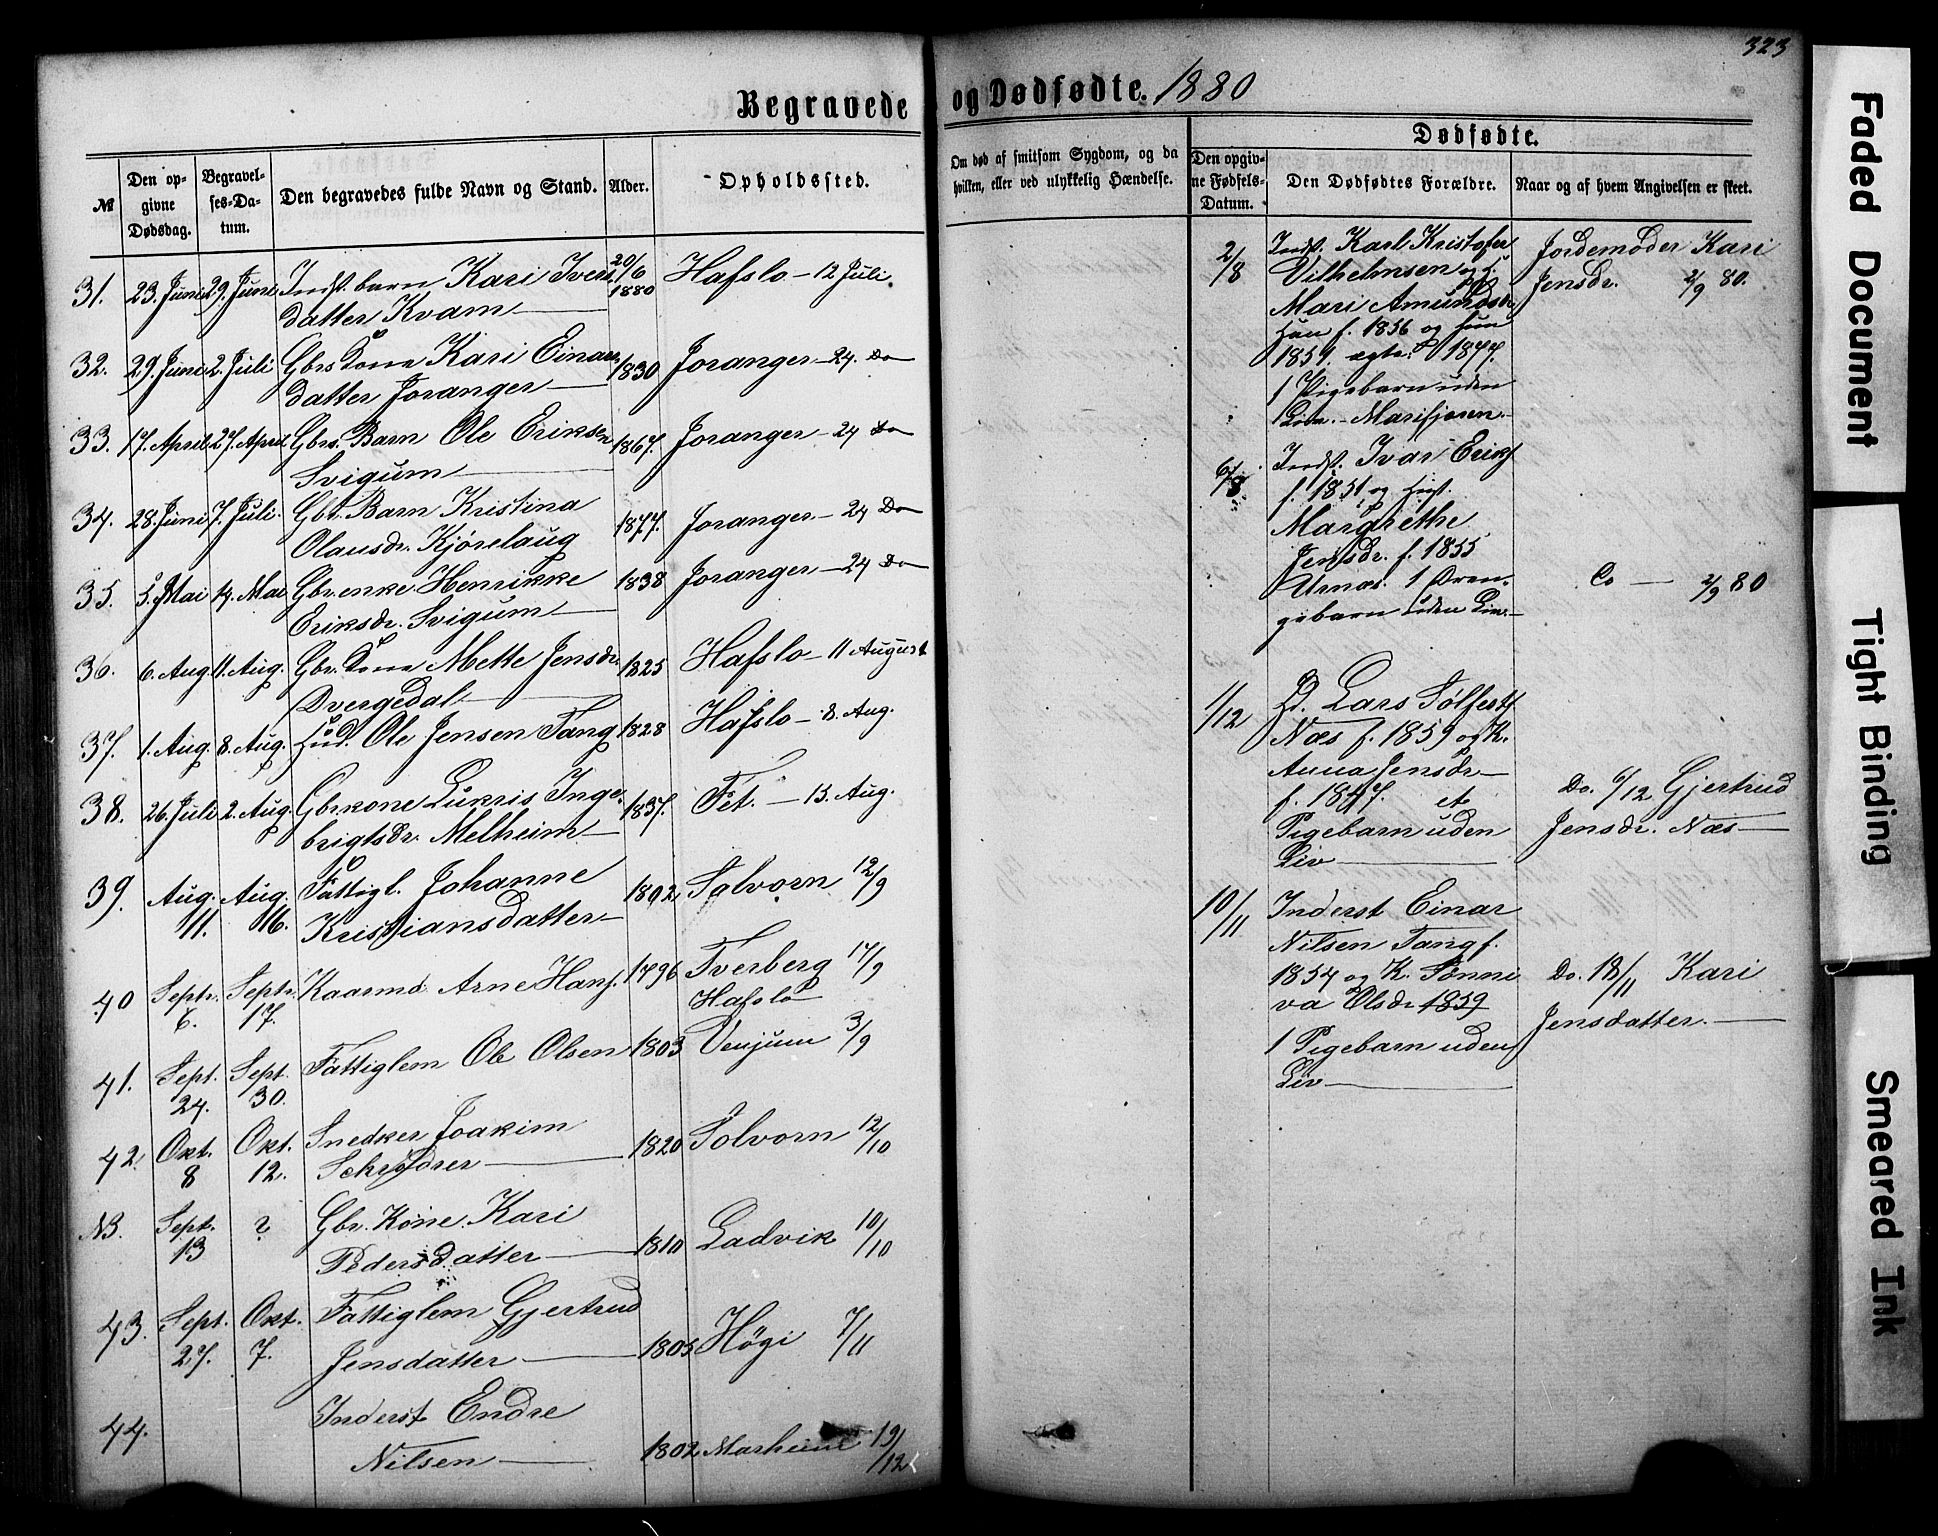 323
Begravede og Dødfødte. 1880
№
Den opgivne Dødsdag.
Begravelses-Datum.
Den begravedes fulde Navn og Stand.
Alder.
Opholdssted.
31. 23. Juni 29. Juni Indst. barn Kari Ivers 20/6 1880 Hafslo - 12 Juli.
datter Kvam
32. 29. Juni 2. Juli Gbrs Kone Kari Einars 1830 Joranger - 24. Do
datter Joranger
33. 17. April 27. April Gbrs. Barn Ole Eriksen 1867. Joranger - 24 Do
Svigum
34. 28. Juni 7. Juli. Gbr. Barn Kristina 1877. Joranger - 24 Do
Olausdr. Kjørelaug
35. 5. Mai 14. Mai Gbr. enke Henrikke 1838 Joranger - 24 Do
Eriksdr. Svigum
36. 6. Aug. 11. Aug. Gbr. Kone Mette Jensdr. 1825 Hafslo - 11 August
Dvergedal
37. 1. Aug. 8. Aug. Hud. Ole Jensen Tang 1828 Hafslo - 8. Aug.
38. 26. Juli 2. Aug. Gbrkone Lukris Inge- 1837. Fet. - 13. Aug.
brigtsdr. Melheim
39. Aug. 11. Aug. 16. Fattigl. Johanne 1802 Solvorn 12/9
Kristiansdatter
40 Septr. 6. Septr. 17. Kaarmd Arne Hans. 1796 Tverberg 17/9
Hafslo
41. Sept. 24. Sept. 30. Fattiglem Ole Olsen 1803 Venjum 3/9
42. Okt. 8 Okt. 12. Snedker Joakim 1820 Solvorn 12/10
Schrøder
NB. Sept. 13 ? Gbr. Kone Kari 1810 Ladvik 10/10
Pedersdatter
43. Sept. 27. Okt. 7. Fattiglem Gjertrud
Jensdatter 1805 Høgi 7/11
44. Inderst Endre
Nilsen 1802 Marheim 19/12
Om død af smitsom Sygdom, og da
hvilken, eller ved ulykkelig Hændelse.
Dødfødte.
Den opgivne Fødsels-Datum.
Den Dødfødtes Forældre.
Naar og af hvem Angivelsen er skeet.
2/8 Indst. Karl Kristofer Jordemoder Kari
Vilhelmsen og H. Jensdr. 2/9 80.
Mari Amundsdr
Han f. 1856 og hun
1859. egtv. 1877.
1 Pigebarn uden
Liv. - Marifjæren
6/8 Indst. Ivar Eriks
f. 1851 og Hust.
Margrethe
Jensdr. f. 1855
Urnæs. 1 Dren- Do 2/9 80
gebarn uden Liv.
1/12 Lars Sølfest
Næs f. 1859 og K.
Anna Jensdr Do. 6/12 Gjertrud
f. 1847. et
Pigebarn uden Jensdr. Næs
Liv
10/11 Inderst Einar
Nilsen Tang f.
1854 og K. Sønne Do. 18/11 Kari
va Olsdr 1859
Jensdatter.
1 Pigebarn uden
Liv
Faded Document
Tight Binding
Smeared Ink